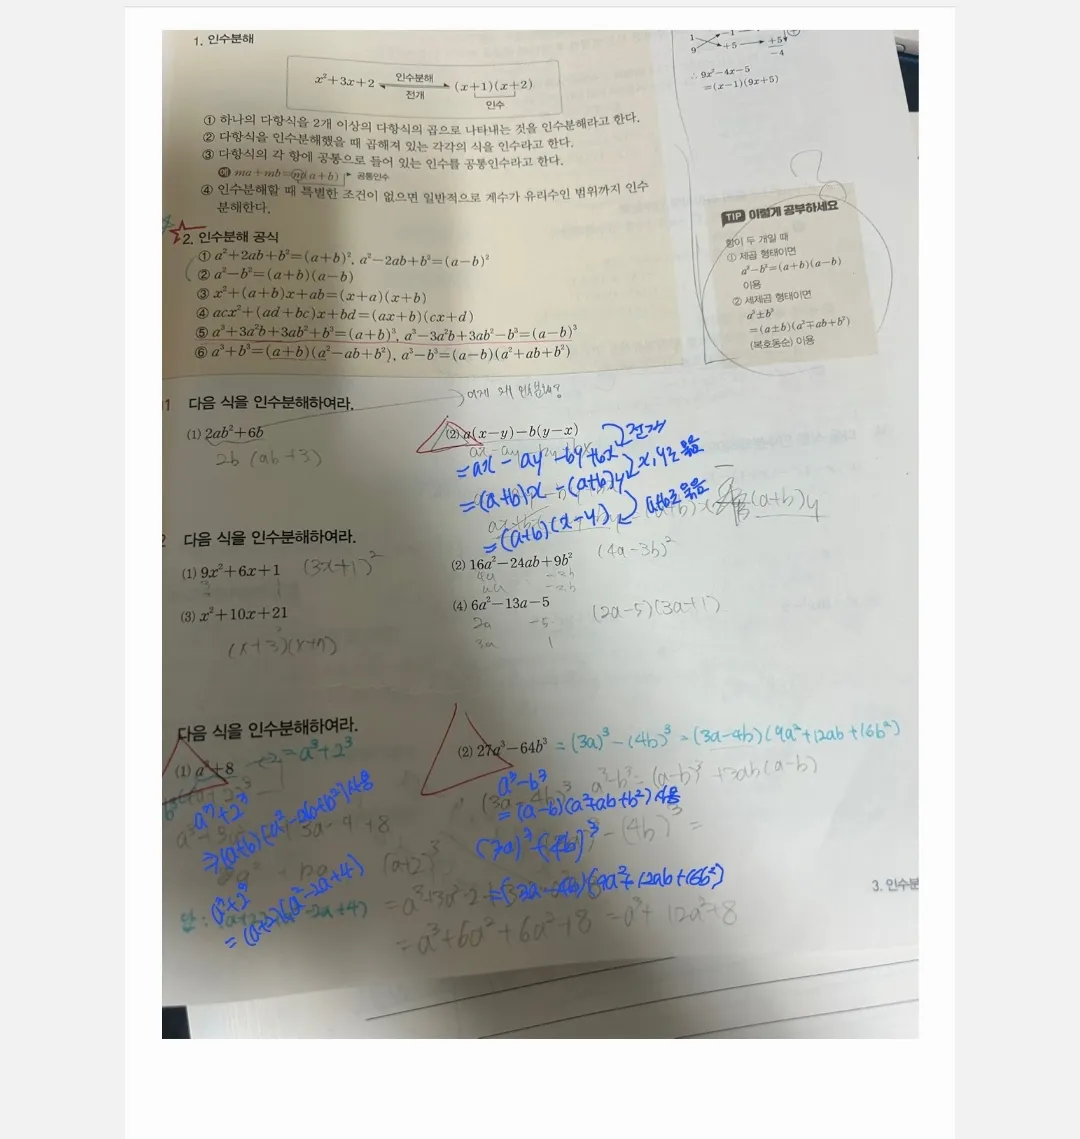 1. 인수분해
x²+3x+2 인수분해 전개 (x+1)(x+2)
인수
① 하나의 다항식을 2개 이상의 다항식의 곱으로 나타내는 것을 인수분해라고 한다.
② 다항식을 인수분해했을 때 곱해져 있는 각각의 식을 인수라고 한다.
③ 다항식의 각 항에 공통으로 들어 있는 인수를 공통인수라고 한다.
예 ma+mb=m(a+b) 공통인수
④ 인수분해할 때 특별한 조건이 없으면 일반적으로 계수가 유리수인 범위까지 인수
분해한다.
2. 인수분해 공식
① a²+2ab+b²=(a+b)², a²-2ab+b²=(a-b)²
② a²-b²=(a+b)(a-b)
③ x²+(a+b)x+ab=(x+a)(x+b)
④ acx²+(ad+bc)x+bd=(ax+b)(cx+d)
⑤ a³+3a²b+3ab²+b³=(a+b)³, a³-3a²b+3ab²-b³=(a-b)³
⑥ a³+b³=(a+b)(a²-ab+b²), a³-b³=(a-b)(a²+ab+b²)
1 -1
9 +5 +5
-4
∴ 9x²-4x-5
=(x-1)(9x+5)
TIP 이렇게 공부하세요
항이 두 개일 때
① 제곱 형태이면
a²-b²=(a+b)(a-b)
이용
② 세제곱 형태이면
a³±b³
=(a±b)(a²∓ab+b²)
(복호동순) 이용
1 다음 식을 인수분해하여라.
이게 왜 인수분해?
(1) 2ab²+6b
2b (ab+3)
(2) a(x-y)-b(y-x)
=ax-ay-by+bx 전개
=(a+b)x-(a+b)y x, y로 묶음
=(a+b)(x-y) a+b로 묶음
(a+b)y
2 다음 식을 인수분해하여라.
(1) 9x²+6x+1 (3x+1)²
3 1
(2) 16a²-24ab+9b² (4a-3b)²
4a -3b
4a -3b
(3) x²+10x+21
(x+3)(x+7)
(4) 6a²-13a-5 (2a-5)(3a+1)
2a -5
3a 1
다음 식을 인수분해하여라.
(1) a³+8 = a³+2³
a³+2³
⇒(a+b)(a²-ab+b²)사용
a³+2³
=(a+2)(a²-2a+4)
(a+2)³
(2) 27a³-64b³ =(3a)³-(4b)³=(3a-4b)(9a²+12ab+16b²)
a³-b³=(a-b)³+3ab(a-b)
a³-b³
=(a-b)(a²+ab+b²) 사용
(3a)³-(4b)³
-(4b)³=
=(3a-4b)(9a²+12ab+16b²)
=a³+6a²+6a²+8=a³+12a²+8
3. 인수분